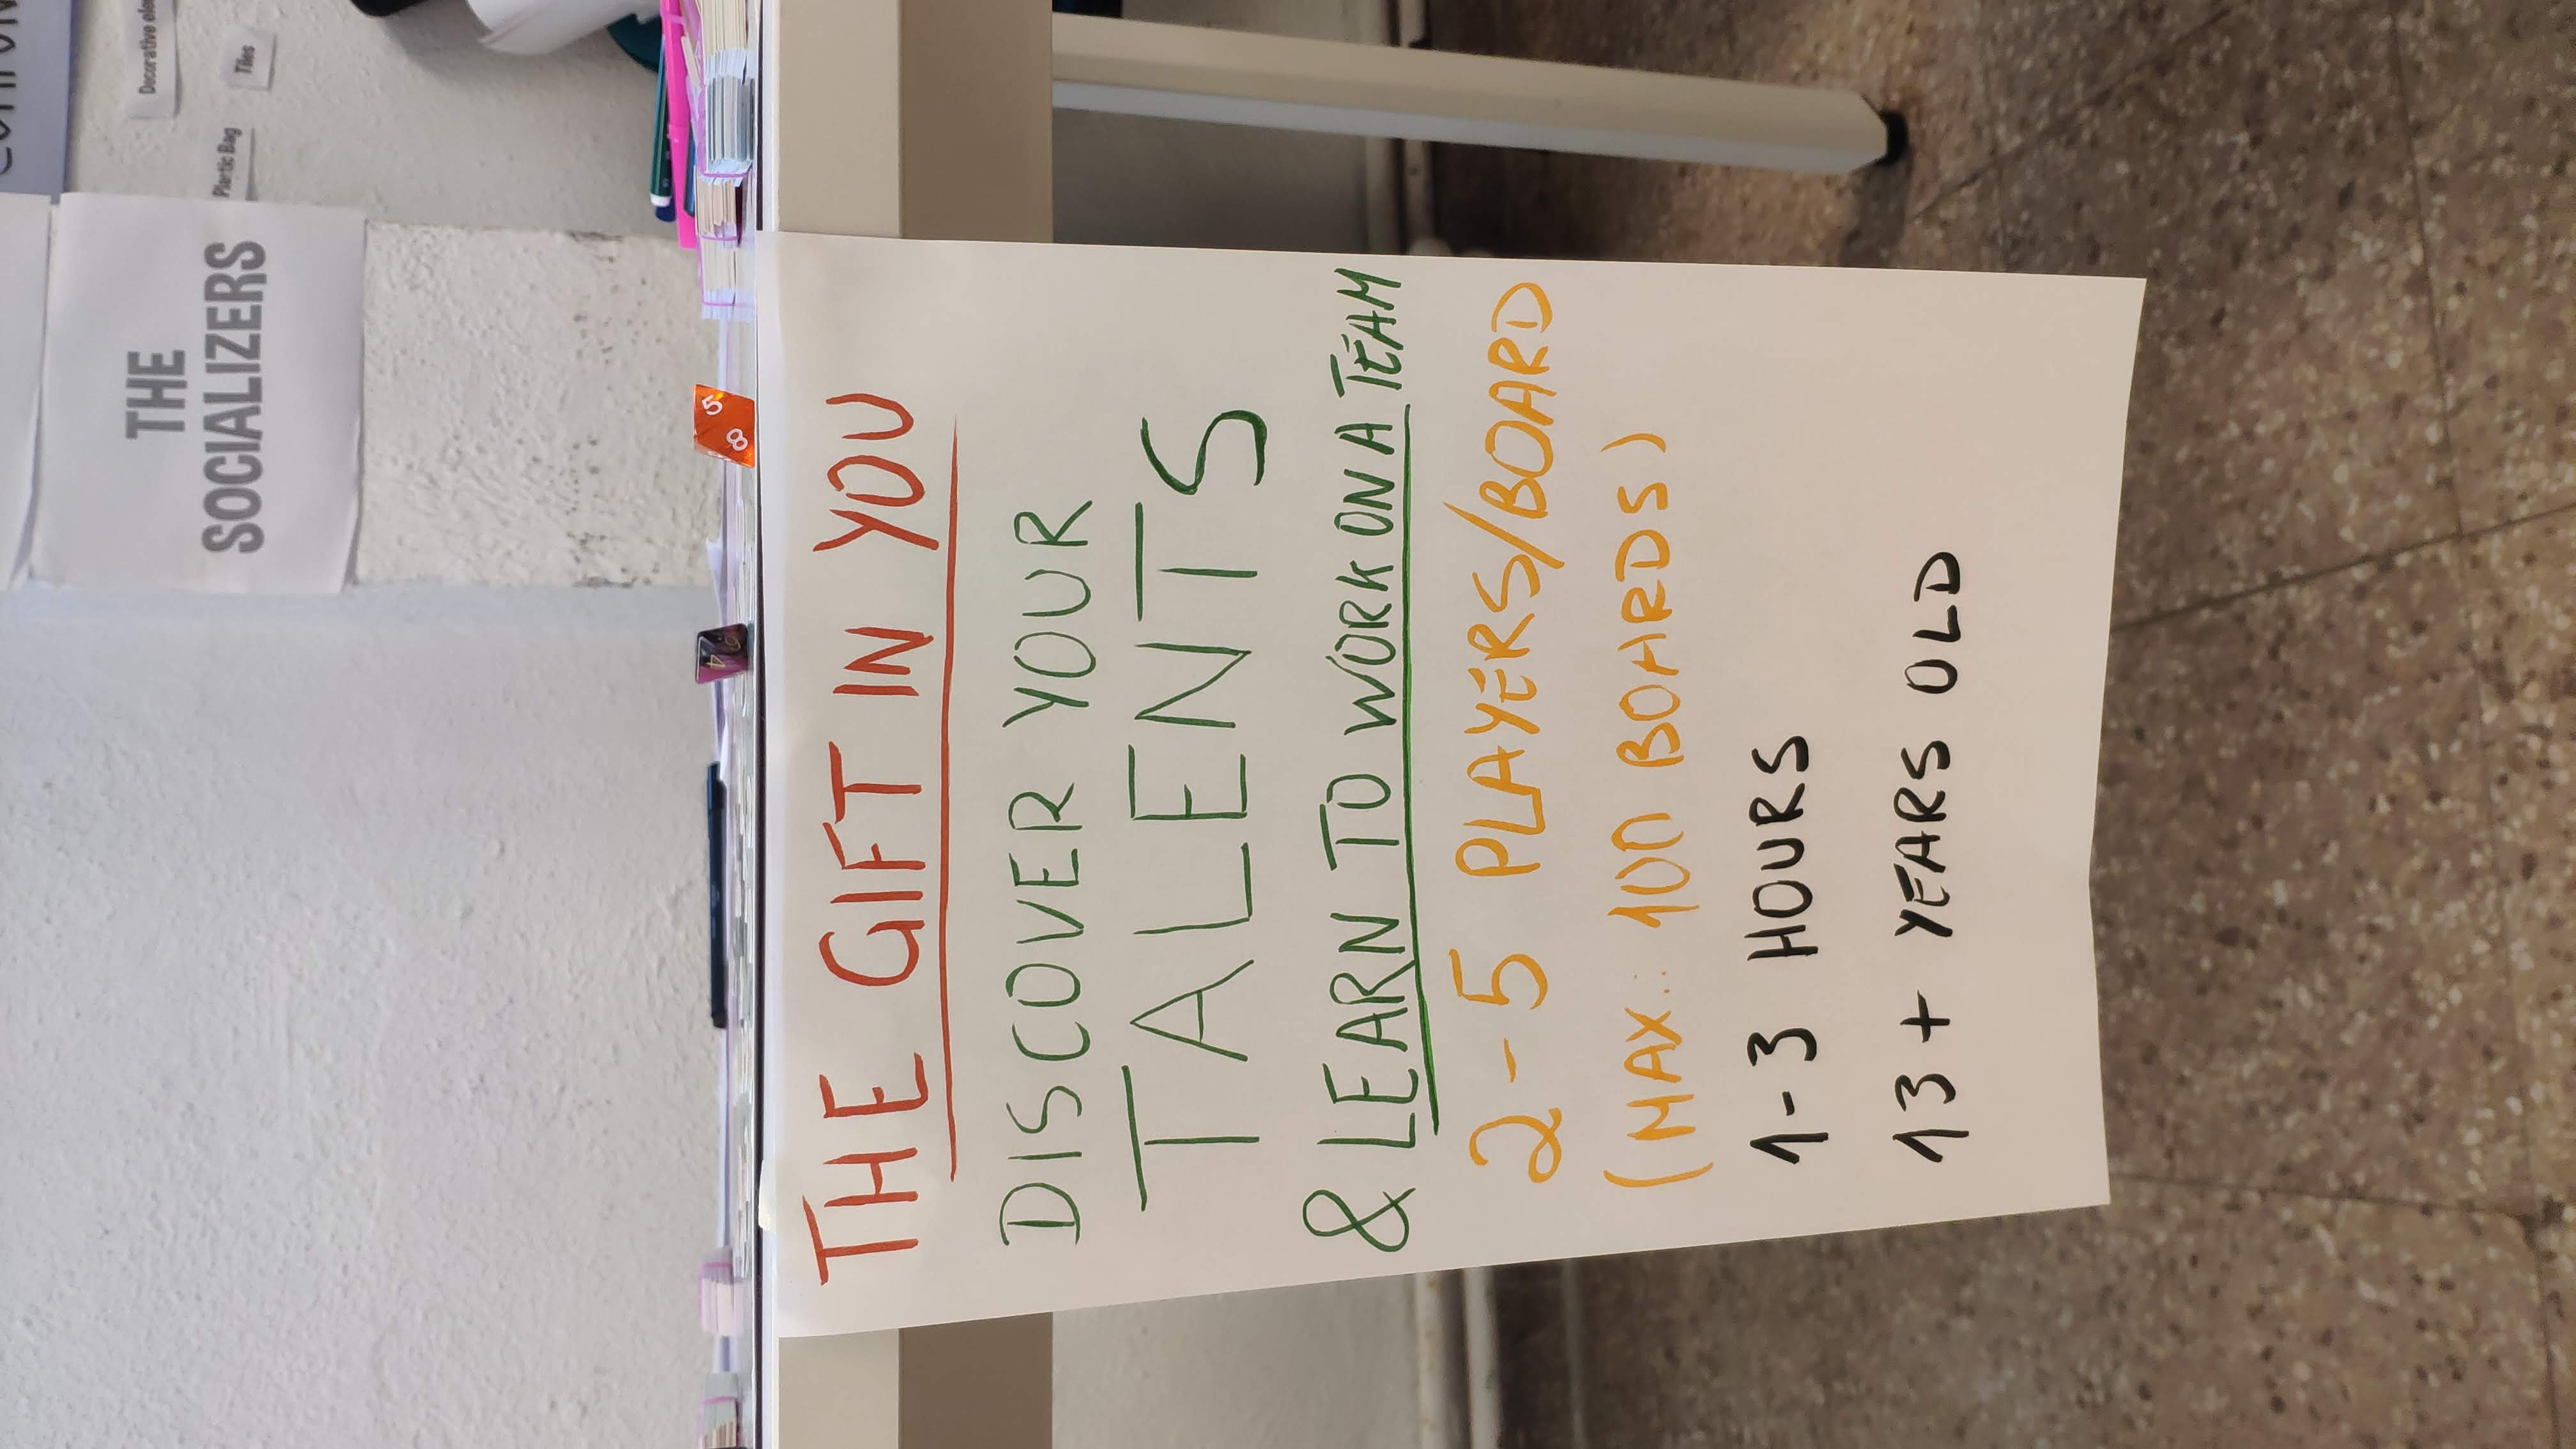 THE
SOCIALIZERS
Plastic Bag
Tiles
5
8
THE GIFT IN YOU
DISCOVER YOUR
TALENTS
& LEARN TO WORK ON A TEAM
2-5 PLAYERS/BOARD
(MAX.: 100 BOARDS)
1-3 HOURS
13+ YEARS OLD